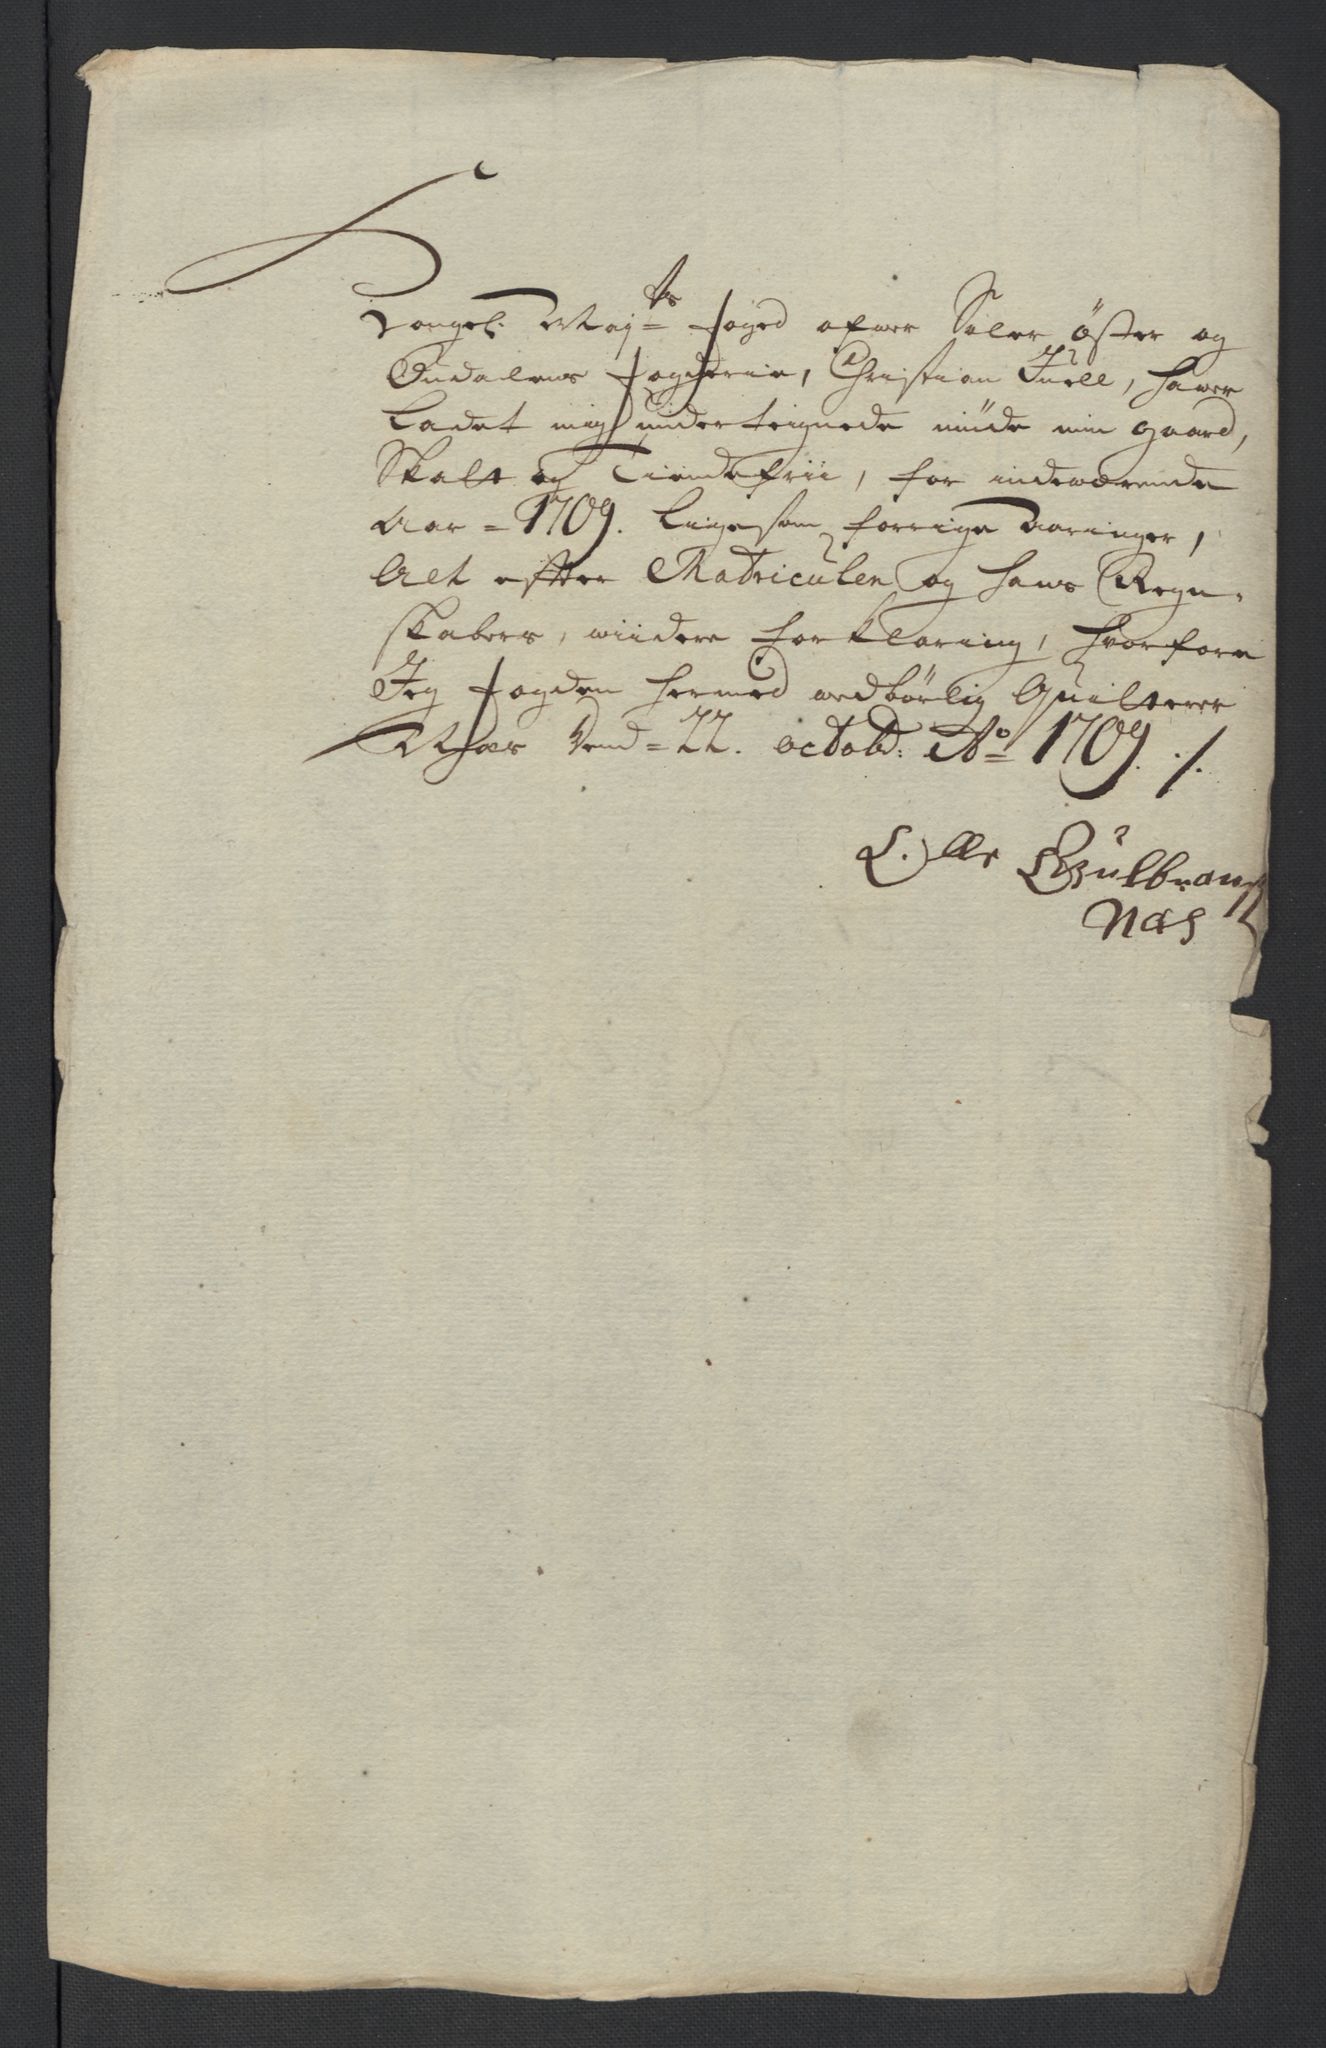 Kongel: Maÿ:ts foged ofwer Soløer Öster og
Oudalens fogderie, Christian Juell, hawer
Ladet mig underteignede niüde min gaard,
Skatt og Tiendefrii, for indewærende
Aar = 1709. Ligesom forrige Aaringer,
Alt effter Matriculen og hans Regn-
skabers, wiidere forklaring, hvorfore
Jeg fogden hermed wedbörlig Quitterer
Næs Dend = 22. octobr: Ao 1709 ./.
Olle Gulbrans
Næs